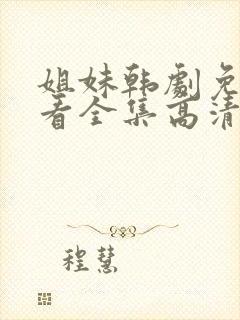 姐妹韩劇免
看全集高清
程慧